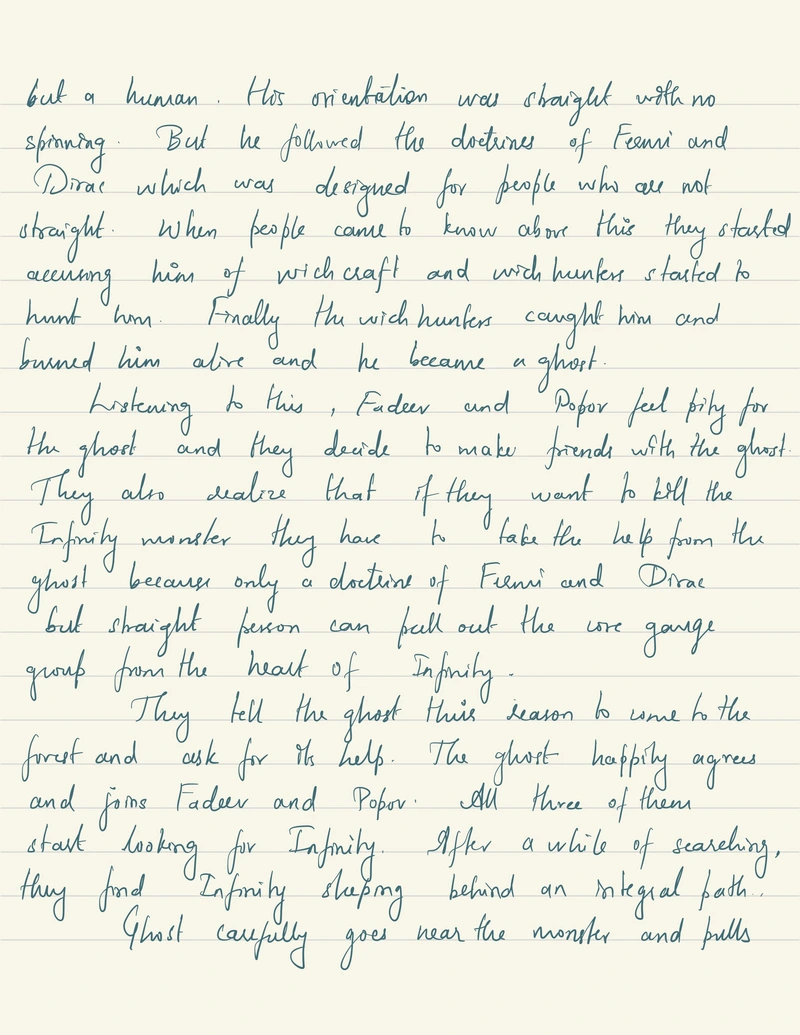 but a human. His orientation was straight with no
spinning. But he followed the doctrines of Fermi and
Dirac which was designed for people who are not
straight. When people came to know above this they started
accusing him of wichcraft and wich hunters started to
hunt him. Finally the wich hunters caught him and
burned him alive and he became a ghost.
Listening to this, Fadeev and Popov feel pity for
the ghost and they decide to make friends with the ghost.
They also realize that if they want to kill the
Infinity monster they have to take the help from the
ghost because only a doctrine of Fermi and Dirac
but straight person can pull out the core gauge
group from the heart of Infinity.
They tell the ghost their reason to come to the
forest and ask for its help. The ghost happily agrees
and joins Fadeev and Popov. All three of them
start looking for Infinity. After a while of searching,
they find Infinity sleeping behind an integral path..
Ghost carefully goes near the monster and pulls